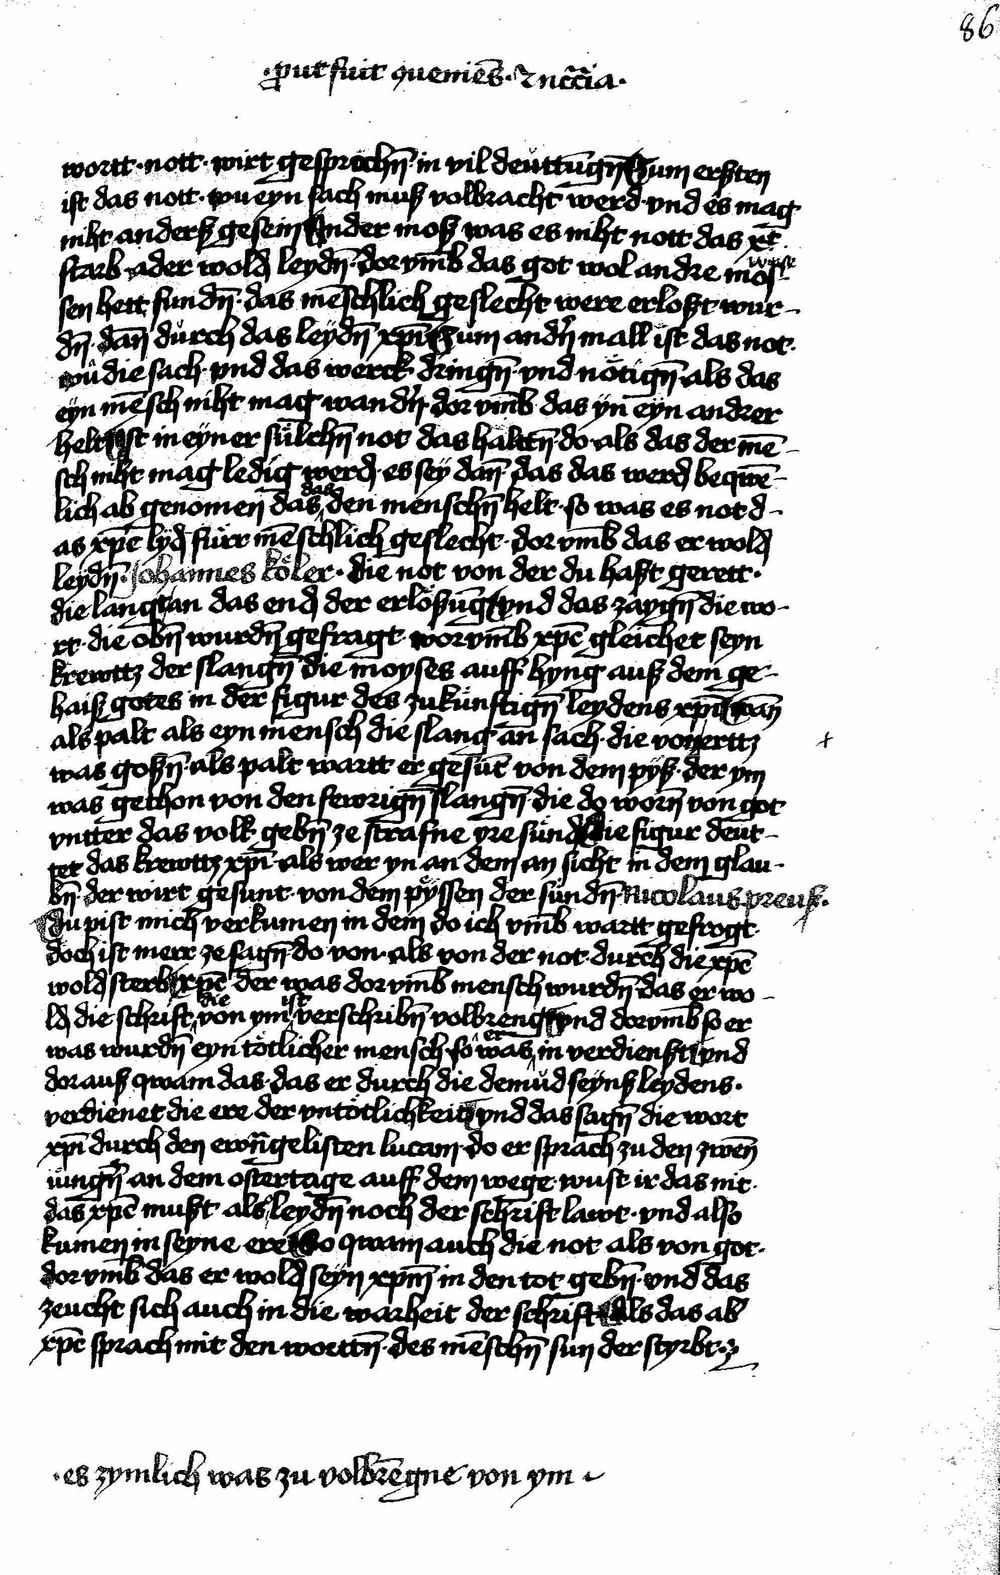 86
·put fuit queniēs· ⁊ nc̄cīa·
wortt· nott· wirt gesprochn̄ in vil deuttūgn̄ Zum ersten
ist das nott· wu eyn sach muß volbracht werd· vnd es mag
niht anderß gesein Ander moß was es niht nott das xp̄c
starb· ader wold leydn̄· dor vmb das got wol andre mos weise
sen hett fundn̄· das mēschlich geslecht were erloßt wur-
dn̄· dan̄ durch das leydn̄ xp̄i Zum andn̄ mall ist das not·
wu die sach· vnd das werck dringn̄· vnd nötign̄· als das
eyn mēsch niht mag wandn̄· dor vmb das yn eyn andrer
helt Ist in eyner sülchn̄ not das haltn̄· do· als das der mē-
sch niht mag ledig werd· es sey dan̄ das das werd beqwē-
lich ab genomen das das den menschn̄ helt· so was es not d-
as xp̄c lyd fürr mēschlich geslecht· dor vmb das er wold
leydn̄· Johannes köler· die not von der du hast gerett·
die langt an das end der erlösūg vnd das zaygn̄ die wo-
rt· die obn̄ wurdn̄ gefragt· worvmb xp̄c gleichet seyn
krewttz der slangn̄ die moyses auff hyng auß dem ge-
haiß gotes in der figur des zukünftign̄ leydens xp̄i wan̄
als palt als eyn mensch die slang an sach· die von ertz
was goßn̄· als palt wartt er gesūt von dem pyß· der ym
was gethon von den fewrign̄ slangn̄· die do worn̄ von got
vntter das volk gebn̄ ze strafne yre sünd Die figur deut-
tet das krewttz xp̄i· als wer yn an dem an sicht in dem glau-
bn̄· der wirt gesunt· von dem pyssen der sündn̄· Nicolaus preuß·
Du pist mich verkumen in dem do ich vmb wartt gefrogt
doch ist merr ze sagn̄· do von· als von der not· durch die xp̄c
wold sterb xp̄c der was dor vmb mensch wurdn̄ das er wo-
ld die schrift die von ym ist verschribn̄ volbreng vnd dorvmb so er
was wurdn̄ eyn tötlicher mensch· so was er in verdienst vnd
dorauß qwam das· das er durch die demüd seynß leydens·
verdienet die ere der vntötlichkeit vnd das sagn̄ die wort
xp̄i durch den ewn̄gelisten lucam· do er sprach zu den zwen̄
iungn̄ an dem ostertage auff dem wege· wust ir das nit·
das xp̄c mußt als leydn̄ noch der schrift lawt· vnd also
kumen in seyne ere So qwam auch die not als von got·
dor vmb das er wold seyn xp̄m in den tot gebn̄· vnd das
zeucht sich auch in die warheit der schrift Als das ab
xp̄c sprach mit den worttn̄· des mēschn̄ sun der styrbt·
·es zymlich was zu volbrēgne von ym